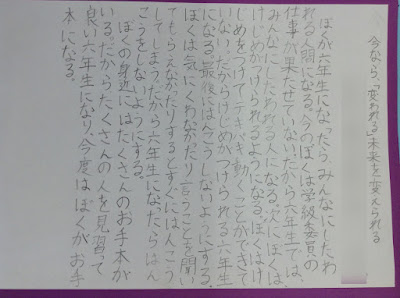 今なら、「変われる」未来を変えられる
ぼくが六年生になったら、みんなにしたわ
れる人間になる。今のぼくは学級委員の
仕事が果たせていない。だから六年生では、
みんなにしたわれる人になる。次にぼくは、
けじめがつけられるようになる。ぼくはけ
じめをつけて、テキパキ動くことができて
いない。だからけじめがつけられる六年生
になる。最後にはんこうしないようにする。
ぼくは気にくわなかったり言うことを聞い
てもらえなかったりするとすぐにはんこう
してしまう。だから六年生になったらはん
こうをしないようにする。
ぼくの身近にはたくさんのお手本が
いる。だからたくさんの人を見習って
良い六年生になり、今度はぼくがお手
本になる。